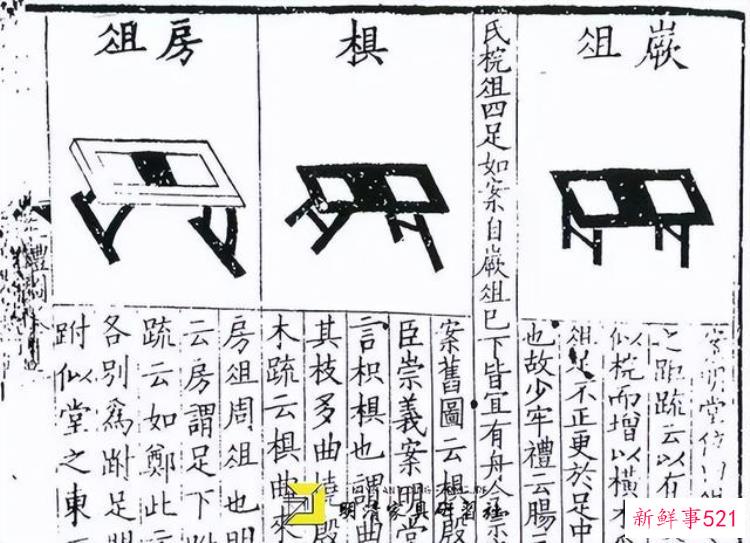 嶡俎
之距疏云以有
似梡而增以橫
俎足不正更於足中
也故少牢禮云腸三
氏梡俎四足如案自嶡俎已下皆宜有舟
椇
案舊圖云椇殷
臣崇義案明堂
言枳椇也謂曲
其枝多曲橈殷
木疏云椇曲來
房俎
房俎周俎也明
云房謂足下
疏云如鄭此
各別爲跗足
跗似堂之東
明清家具研習社
新鮮事521